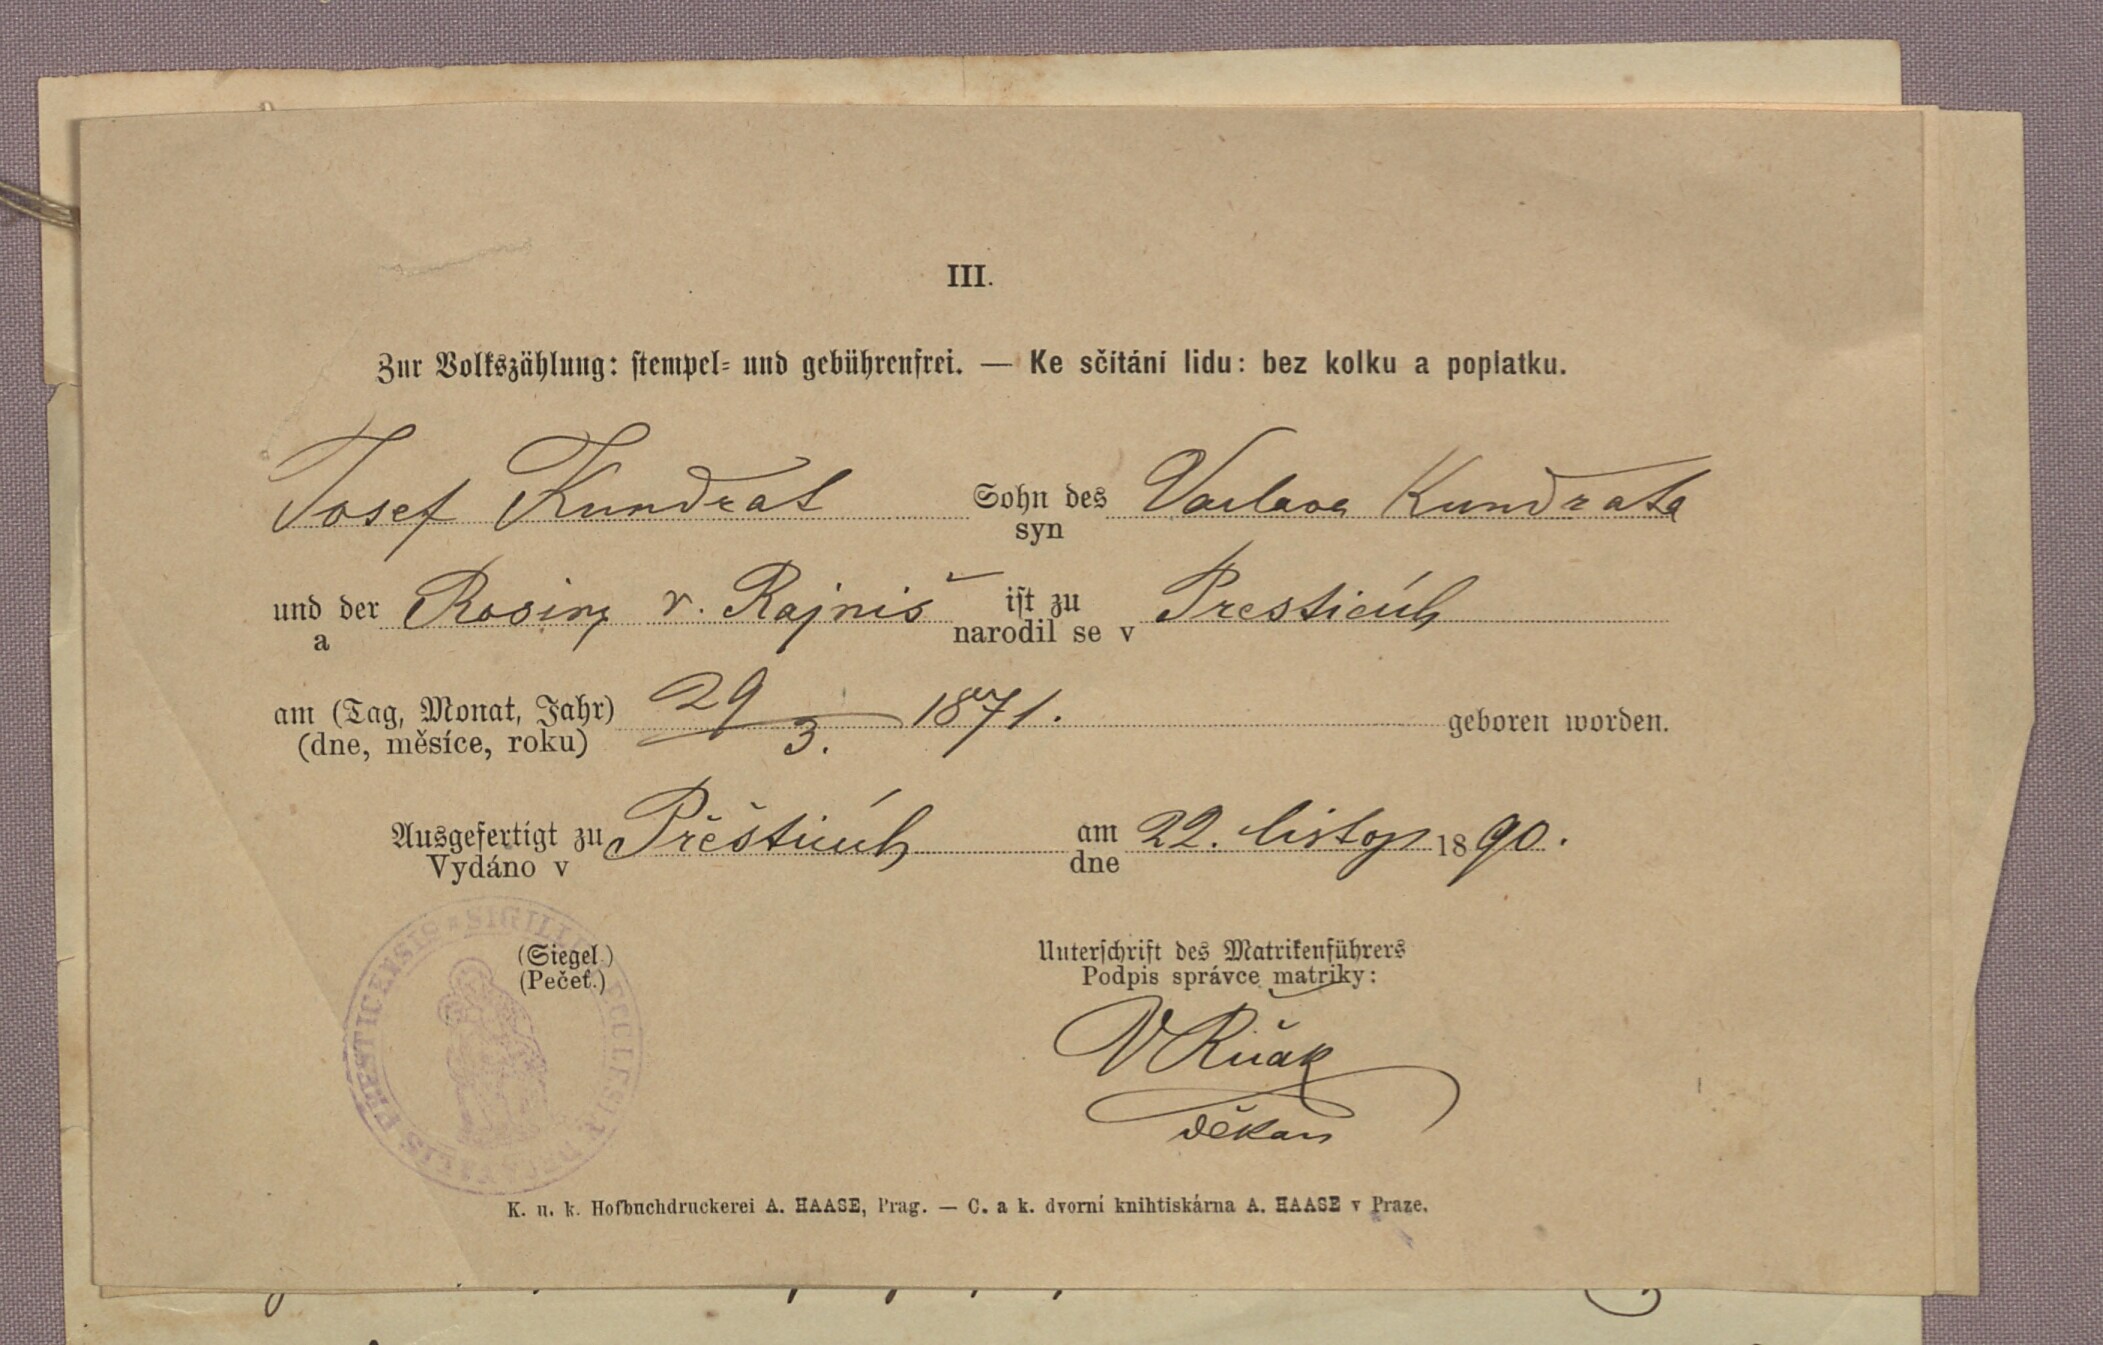 III.
Zur Volkszählung: stempel- und gebührenfrei. — Ke sčítání lidu: bez kolku a poplatku.
Josef Kundrat Sohn des Vaclava Kundrata
syn
und der Rosiny r. Rajniš ist zu Presticích
a narodil se v
am (Tag, Monat, Jahr) 29/3. 1871. geboren worden.
(dne, měsíce, roku)
Ausgefertigt zu Přešticích am 22. listop 1890.
Vydáno v dne
(Siegel.) Unterschrift des Matrikenführers
(Pečeť.) Podpis správce matriky:
děkan
K. u. k. Hofbuchdruckerei A. HAASE, Prag. — C. a k. dvorní knihtiskárna A. HAASE v Praze.